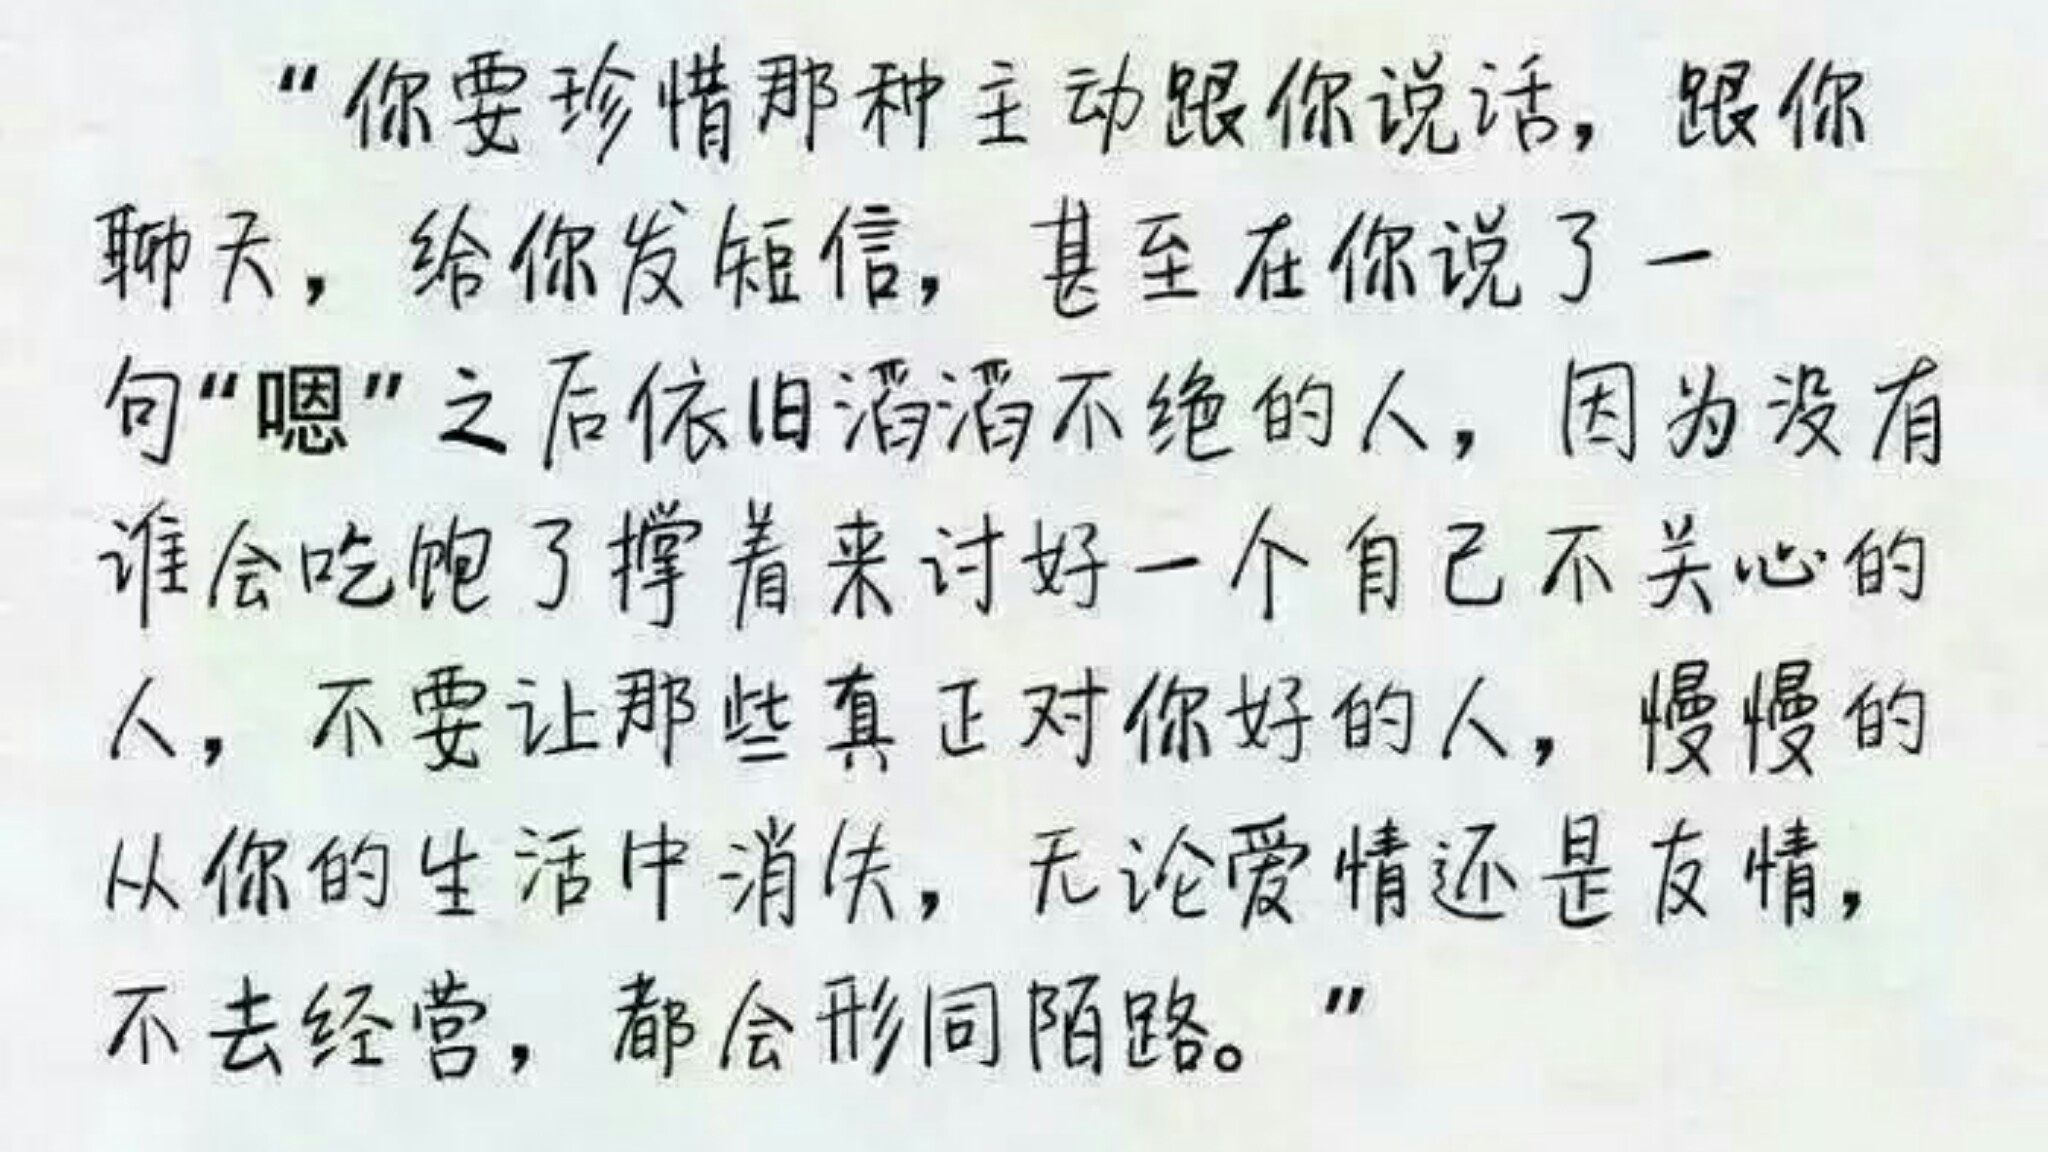 “你要珍惜那种主动跟你说话，跟你
聊天，给你发短信，甚至在你说了一
句“嗯”之后依旧滔滔不绝的人，因为没有
谁会吃饱了撑着来讨好一个自己不关心的
人，不要让那些真正对你好的人，慢慢的
从你的生活中消失，无论爱情还是友情，
不去经营，都会形同陌路。”